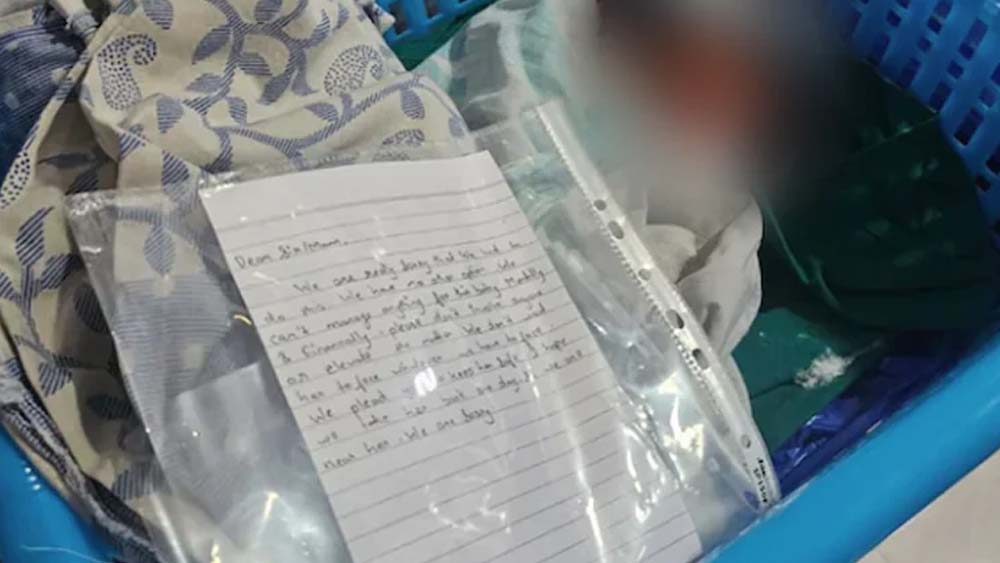 Dear Sir/Mam,
We are really sorry that We had to
do this. We have no other option. We
can't manage anything for this baby Mentally
& financially. please don't involve anyone
or elevate the matter We don't want
her to face whatever we have to face.
We plead keep her safe. I hope
we take her but one day,
near her. We are sorry